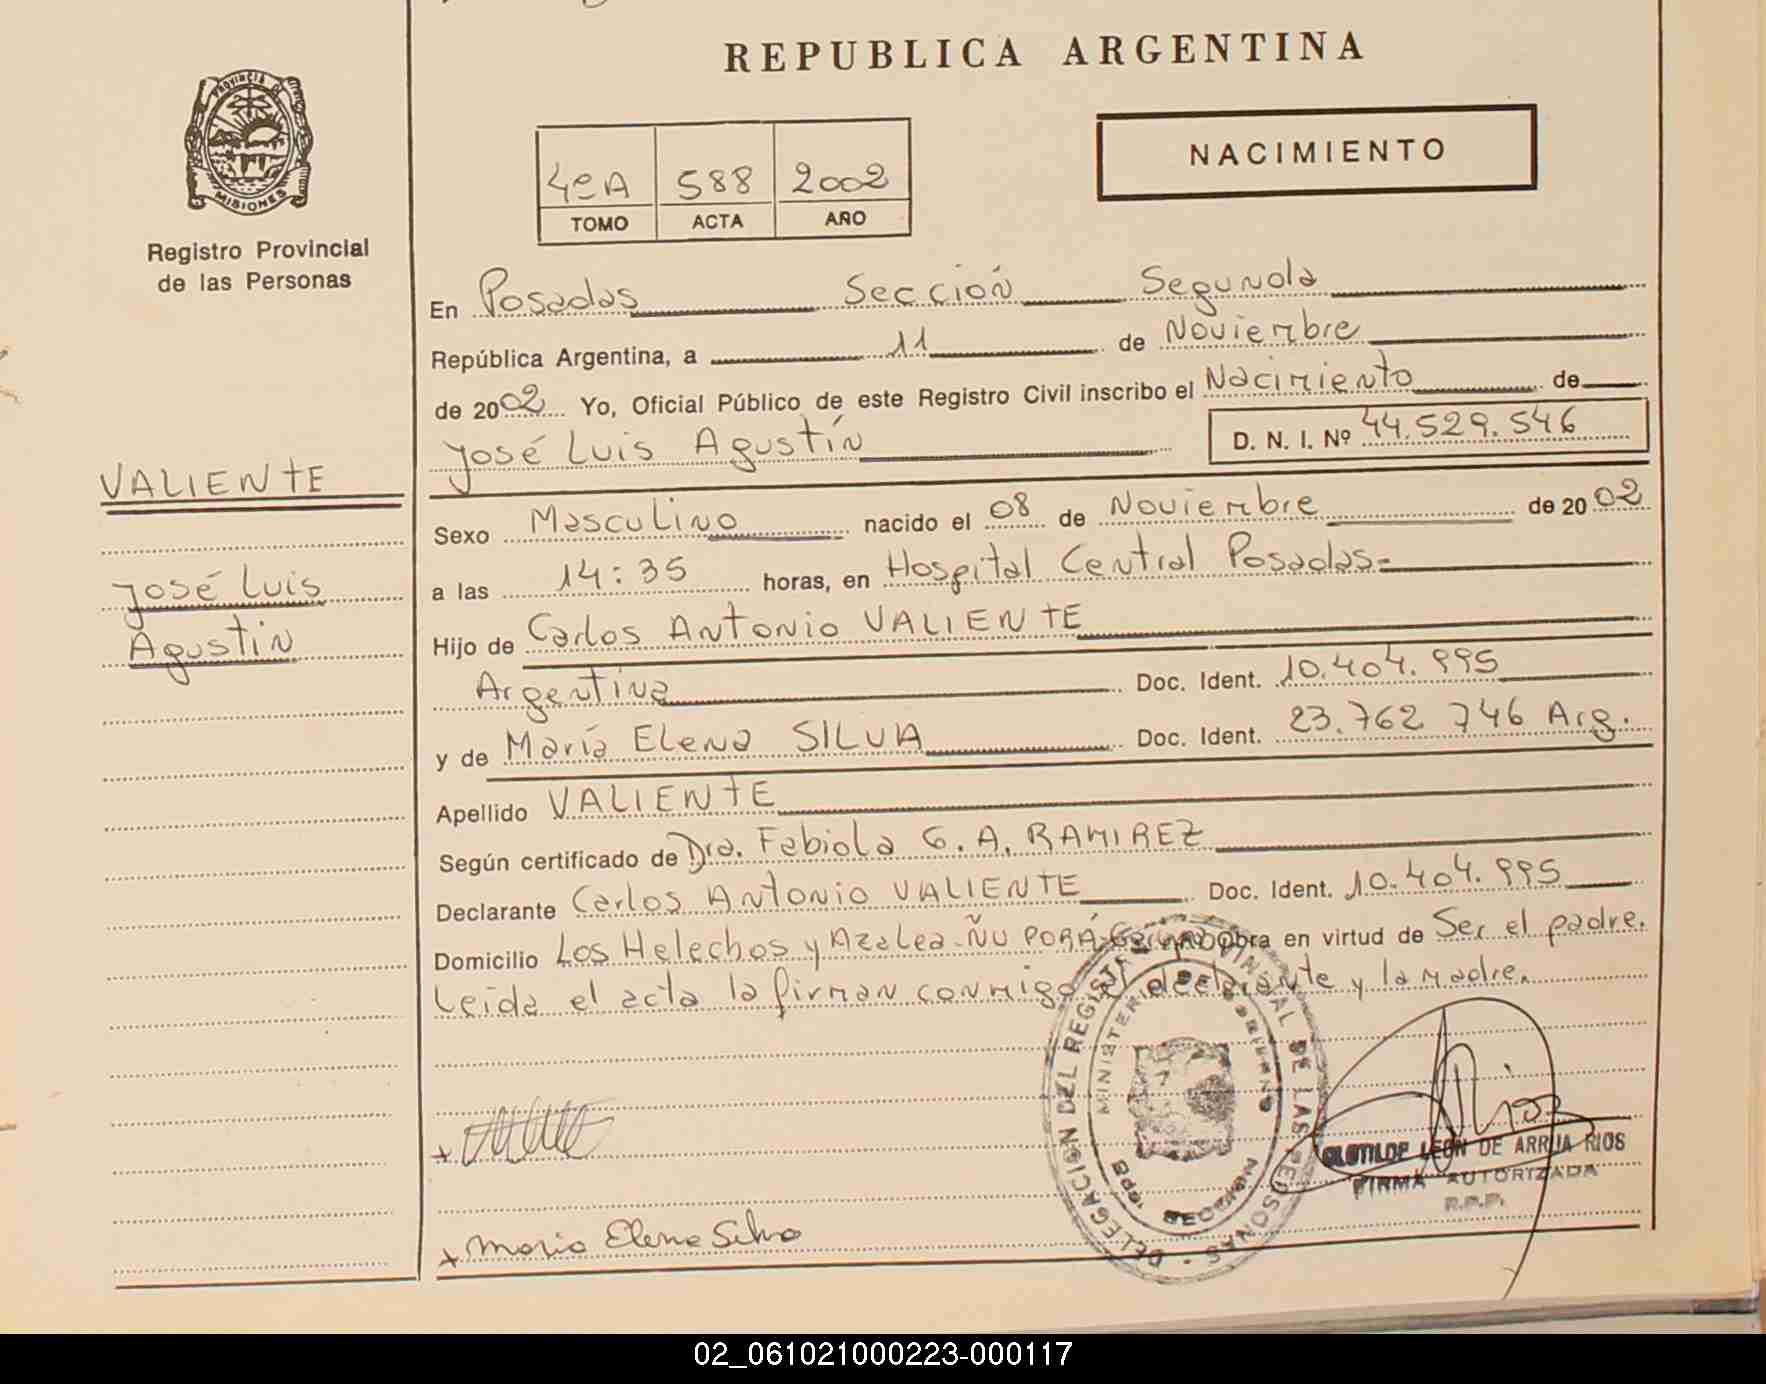 REPUBLICA ARGENTINA
PROVINCIA DE
MISIONES
Registro Provincial
de las Personas
NACIMIENTO
4ºA 588 2002
TOMO ACTA AÑO
En Posadas Sección Segunda
República Argentina, a 11 de Noviembre
de 2002 Yo, Oficial Público de este Registro Civil inscribo el Nacimiento de
José Luis Agustín D. N. I. Nº 44.529.546
VALIENTE
José Luis
Agustín
Sexo Masculino nacido el 08 de Noviembre de 2002
a las 14:35 horas, en Hospital Central Posadas.
Hijo de Carlos Antonio VALIENTE
Argentina Doc. Ident. 10.404.995
y de María Elena SILVA Doc. Ident. 23.762 746 Arg.
Apellido VALIENTE
Según certificado de Dra. Fabiola G. A. RAMIREZ
Declarante Carlos Antonio VALIENTE Doc. Ident. 10.404.995
Domicilio Los Helechos y Azalea-ÑU PORÁ- Obra en virtud de Ser el padre.
Leida el acta la firman conmigo el declarante y la madre.
DELEGACION DEL REGISTRO PROVINCIAL DE LAS PERSONAS
MINISTERIO DE GOBIERNO
SECCION
LEON DE ARRUA RIOS
FIRMA AUTORIZADA
R.P.P.
x Maria Elena Silva
02_061021000223-000117